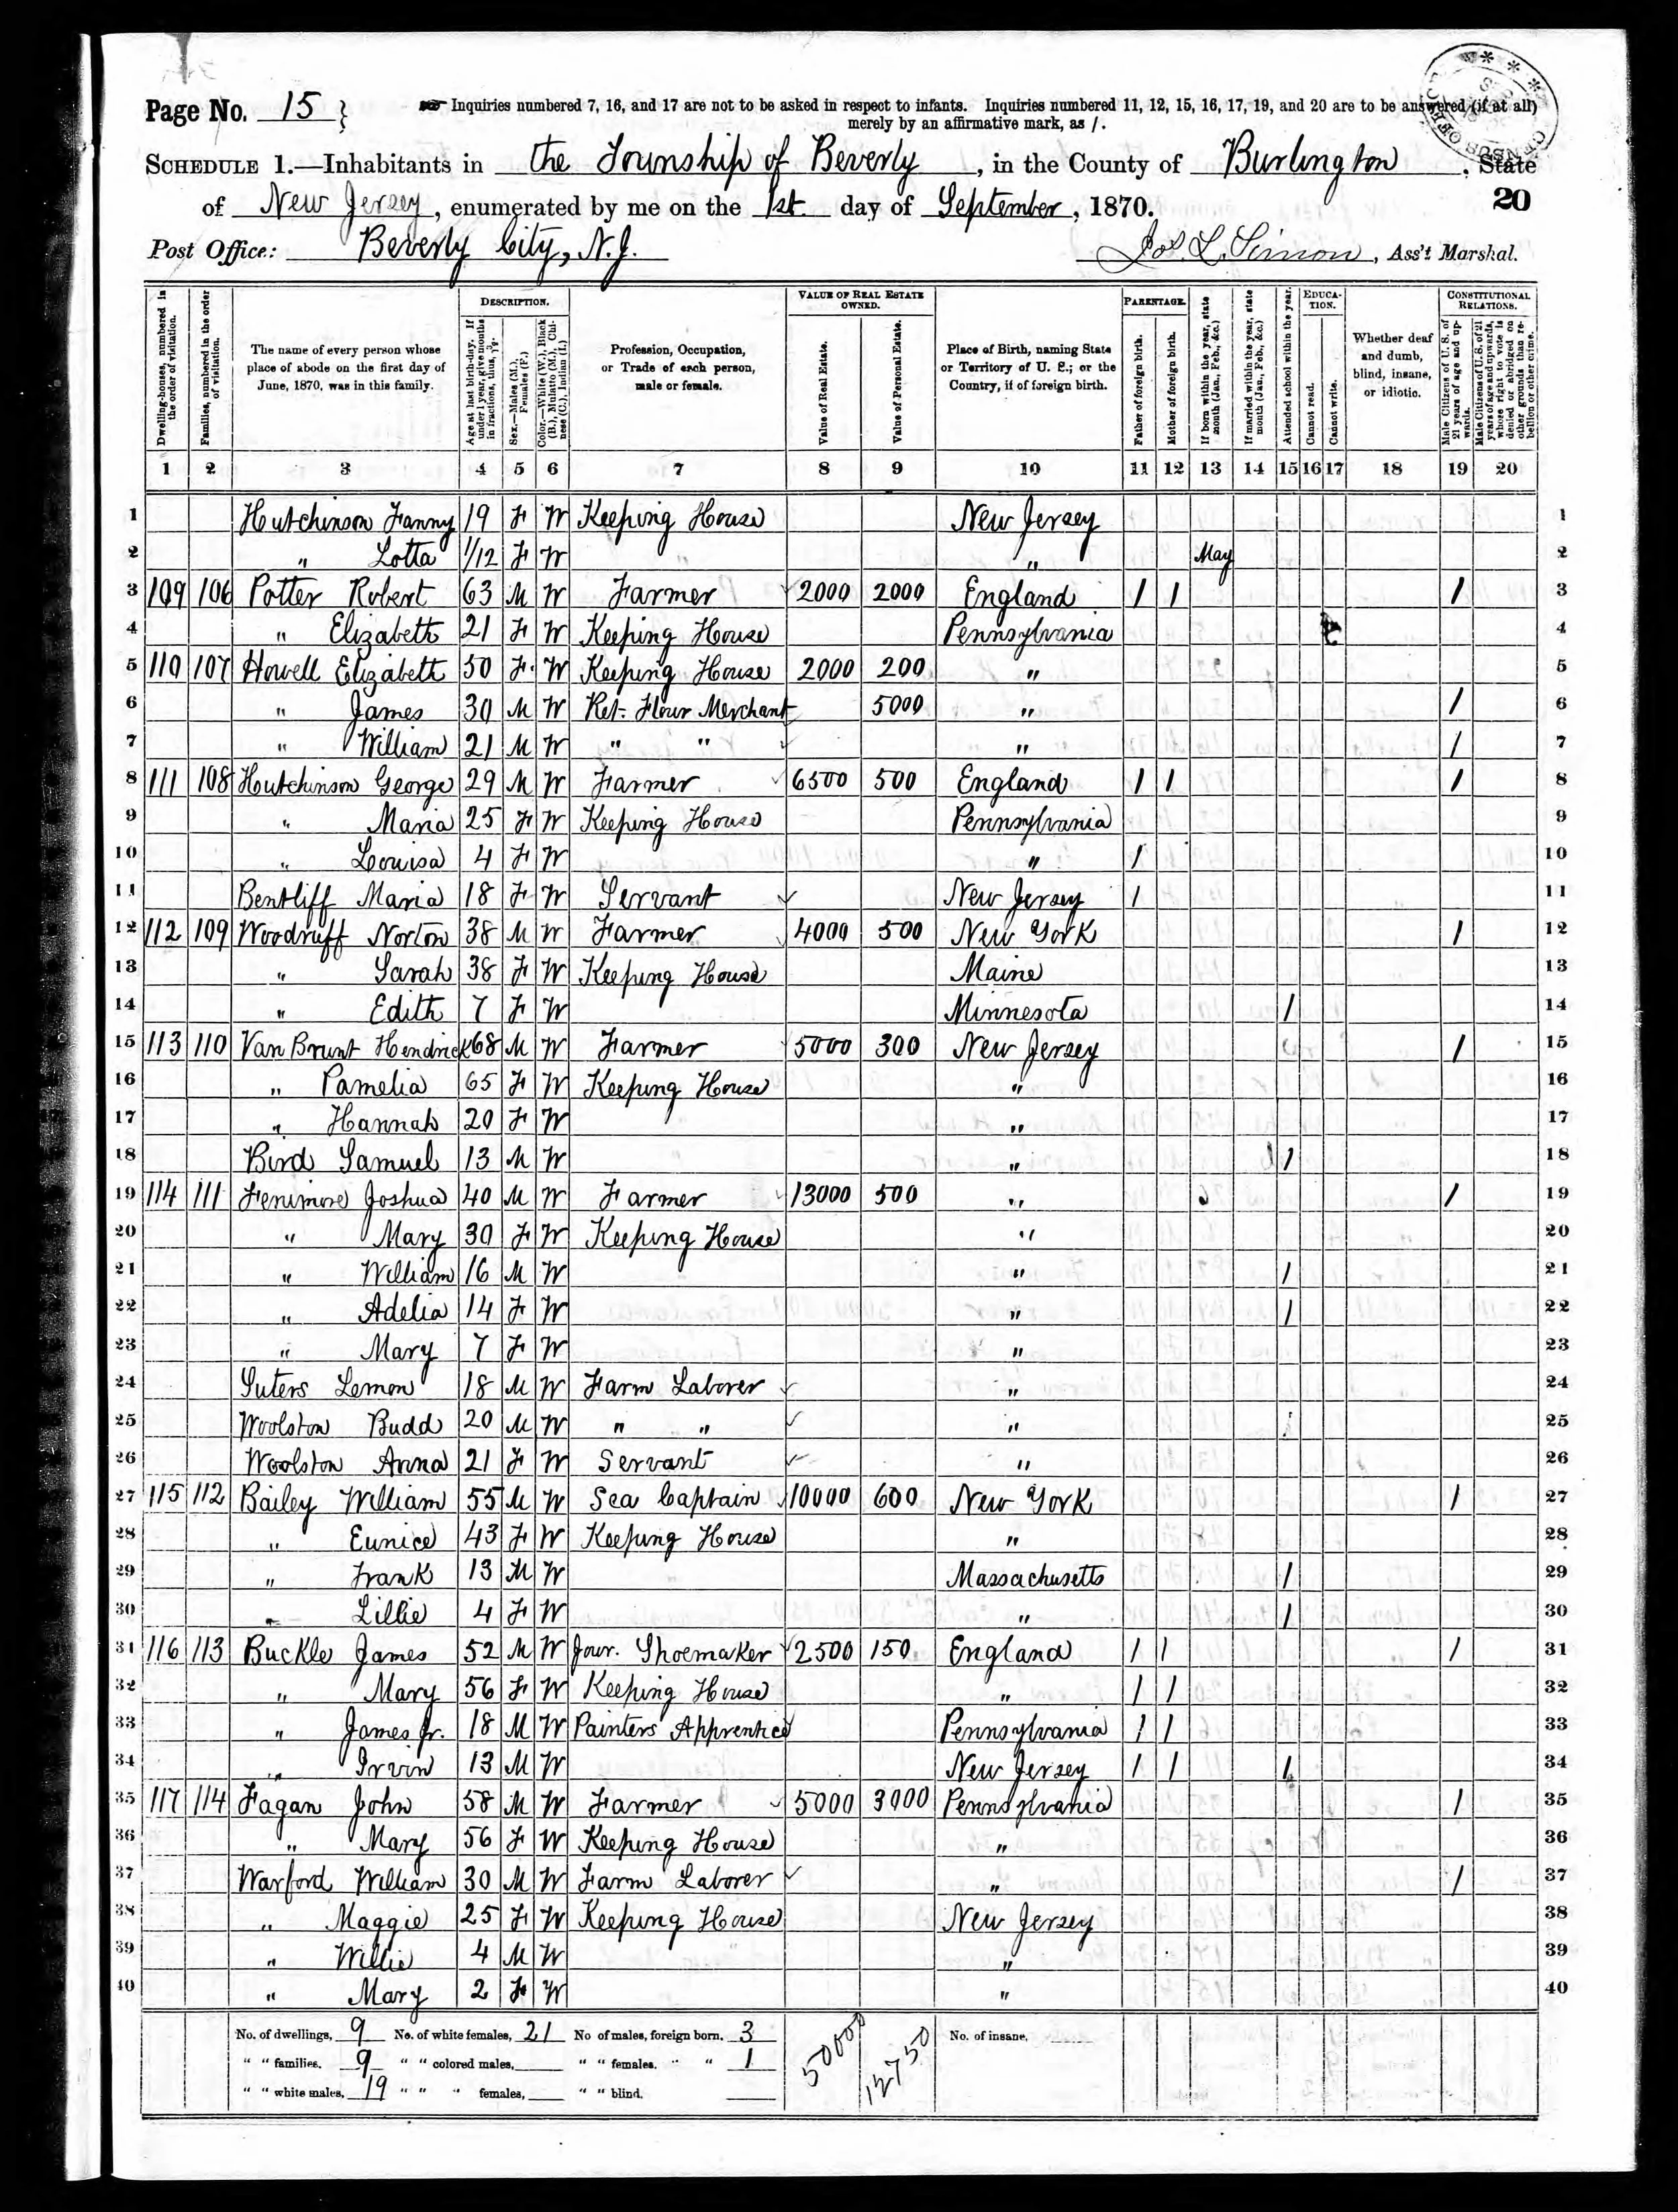 Page No. 15 } Inquiries numbered 7, 16, and 17 are not to be asked in respect to infants. Inquiries numbered 11, 12, 15, 16, 17, 19, and 20 are to be answered (if at all)
merely by an affirmative mark, as /.
SCHEDULE 1.—Inhabitants in the Township of Beverly, in the County of Burlington, State
of New Jersey, enumerated by me on the 1st day of September, 1870. 20
Post Office: Beverly City, N.J. Jos. L. Simon, Ass't Marshal.
Dwelling-houses, numbered in the order of visitation.
Families, numbered in the order of visitation.
The name of every person whose place of abode on the first day of June, 1870, was in this family.
DESCRIPTION.
Age at last birth-day. If under 1 year, give months in fractions, thus, 3/12.
Sex.—Males (M.), Females (F.)
Color.—White (W.), Black (B.), Mulatto (M.), Chinese (C.), Indian (I.)
Profession, Occupation, or Trade of each person, male or female.
VALUE OF REAL ESTATE OWNED.
Value of Real Estate.
Value of Personal Estate.
Place of Birth, naming State or Territory of U. S.; or the Country, if of foreign birth.
PARENTAGE.
Father of foreign birth.
Mother of foreign birth.
If born within the year, state month (Jan., Feb., &c.)
If married within the year, state month (Jan., Feb., &c.)
Attended school within the year.
EDUCATION.
Cannot read.
Cannot write.
Whether deaf and dumb, blind, insane, or idiotic.
CONSTITUTIONAL RELATIONS.
Male Citizens of U. S. of 21 years of age and upwards.
Male Citizens of U. S. of 21 years of age and upwards, whose right to vote is denied or abridged on other grounds than rebellion or other crime.
1 2 3 4 5 6 7 8 9 10 11 12 13 14 15 16 17 18 19 20
1 Hutchinson Fanny 19 F W Keeping House New Jersey 1
2 " Lotta 1/12 F W " May 2
3 109 106 Potter Robert 63 M W Farmer 2000 2000 England / / / 3
4 " Elizabeth 21 F W Keeping House Pennsylvania 4
5 110 107 Howell Elizabeth 50 F W Keeping House 2000 200 " 5
6 " James 30 M W Ret. Flour Merchant 5000 " / 6
7 " William 21 M W " " " / 7
8 111 108 Hutchinson George 29 M W Farmer 6500 500 England / / / 8
9 " Maria 25 F W Keeping House Pennsylvania 9
10 " Louisa 4 F W " / 10
11 Bentliff Maria 18 F W Servant New Jersey / 11
12 112 109 Woodruff Norton 38 M W Farmer 4000 500 New York / 12
13 " Sarah 38 F W Keeping House Maine 13
14 " Edith 7 F W Minnesota / 14
15 113 110 Van Brunt Hendrick 68 M W Farmer 5000 300 New Jersey / 15
16 " Pamelia 65 F W Keeping House " 16
17 " Hannah 20 F W " 17
18 Bird Samuel 13 M W " / 18
19 114 111 Fenimore Joshua 40 M W Farmer 13000 500 " / 19
20 " Mary 30 F W Keeping House " 20
21 " William 16 M W " / 21
22 " Adelia 14 F W " / 22
23 " Mary 7 F W " 23
24 Suters Lemon 18 M W Farm Laborer " 24
25 Woolston Budd 20 M W " " " / 25
26 Woolston Anna 21 F W Servant " 26
27 115 112 Bailey William 55 M W Sea Captain 10000 600 New York / 27
28 " Eunice 43 F W Keeping House " 28
29 " Frank 13 M W Massachusetts / 29
30 " Lillie 4 F W " / 30
31 116 113 Buckle James 52 M W Jour. Shoemaker 2500 150 England / / / 31
32 " Mary 56 F W Keeping House " / / 32
33 " James Jr. 18 M W Painters Apprentice Pennsylvania / / 33
34 " Irvin 13 M W New Jersey / / / 34
35 117 114 Fagan John 58 M W Farmer 5000 3000 Pennsylvania / 35
36 " Mary 56 F W Keeping House " 36
37 Warford William 30 M W Farm Laborer " / 37
38 " Maggie 25 F W Keeping House New Jersey 38
39 " Willie 4 M W " 39
40 " Mary 2 F W " 40
No. of dwellings, 9 No. of white females, 21 No of males, foreign born, 3 50000 12750 No. of insane,
" " families, 9 " " colored males, " " females, " " 1
" " white males, 19 " " " females, " " blind,